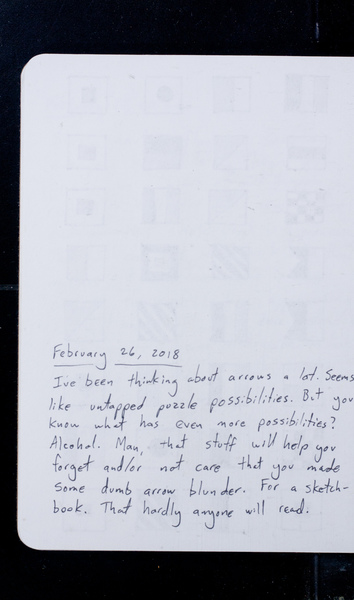 February 26, 2018
I've been thinking about arrows a lot. Seems
like untapped puzzle possibilities. But you
know what has even more possibilities?
Alcohol. Man, that stuff will help you
forget and/or not care that you made
some dumb arrow blunder. For a sketch-
book. That hardly anyone will read.